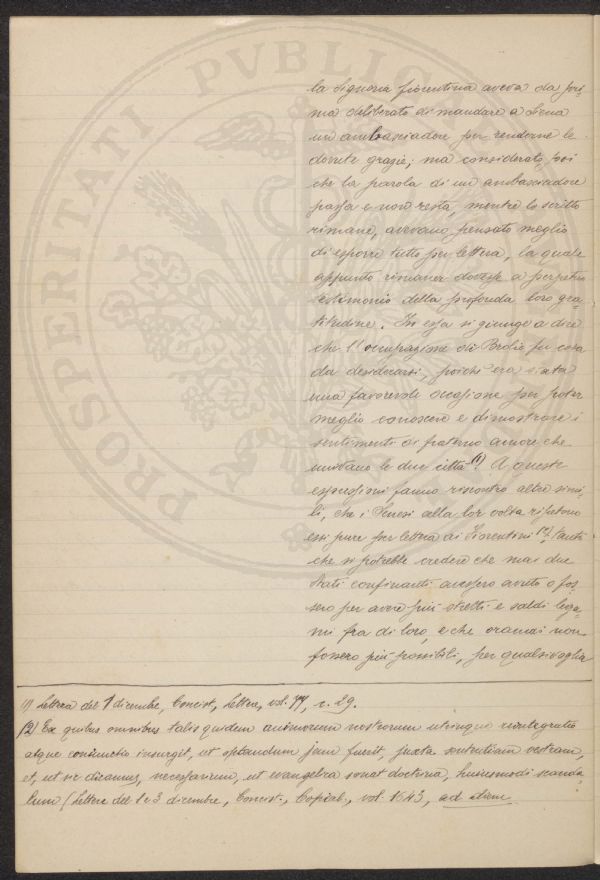 PROSPERITATI PVBLICAE
la Signoria fiorentina aveva da pri-
ma deliberato di mandare a Siena
un ambasciadore per renderne le
dovute grazie; ma considerato poi
che la parola di un ambasciadore
passa e non resta, mentre lo scritto
rimane, avevano pensato meglio
di esporre tutto per lettera, la quale
appunto rimaner dovesse a perpetuo
testimonio della profonda loro gra-
titudine. In essa si giunge a dire
che l'occupazione di Brolio fu cosa
da desiderarsi, poichè era stata
una favorevole occasione per poter
meglio conoscere e dimostrare i
sentimenti di fraterno amore che
univano le due città (1). A queste
espressioni fanno riscontro altre simi-
li, che i Senesi alla lor volta rifecero
essi pure per lettera ai Fiorentini (2), tanto
che si potrebbe credere che mai due
Stati confinanti avessero avuto o fos-
sero per avere più stretti e saldi lega-
mi fra di loro, e che oramai non
fossero più possibili, per qualsivoglia
(1) Lettera del 1 dicembre, Concist., Lettere, vol. 77, c. 29.
(2) Ex quibus omnibus talis quidem animorum nostrorum utrinque reintegratio
atque coniunctio insurgit, ut optandum jam fuerit juxta sententiam vestram,
et, ut sic dicamus, necessarium, ut evangelica sonat doctrina, huiusmodi scanda-
lum (Lettere del 1 e 3 dicembre, Concist., Copial., vol. 1643, ad diem